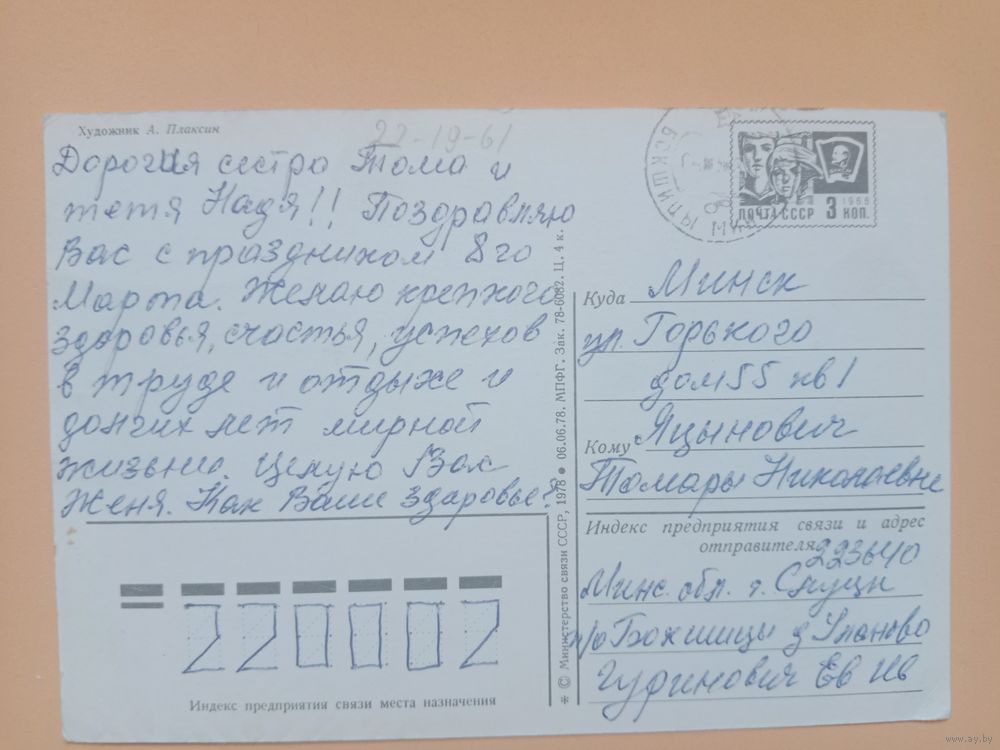 Художник А. Плаксин
22-19-61
Дорогия сестра Тома и
тетя Надя!! Поздравляю
Вас с праздником 8го
Марта. Желаю крепкого
здоровья, счастья, успехов
в труде и отдыхе и
долгих лет мирной
жизьни. Целую Вас
Женя. Как Ваше здоровье?
220002
Индекс предприятия связи места назначения
* © Министерство связи СССР, 1978 ● 06.06.78. МПФГ. Зак. 78-6082. Ц. 4 к.
ПОЧТА СССР 3 КОП. 1966
Куда Минск
ул. Горького
дом 55 кв 1
Кому Яцынович
Томары Николаевне
Индекс предприятия связи и адрес
отправителя 223640
Минс. обл. г. Слуцк
п/о Бокшицы д Уланово
Гуринович Ев Ив
www.ay.by